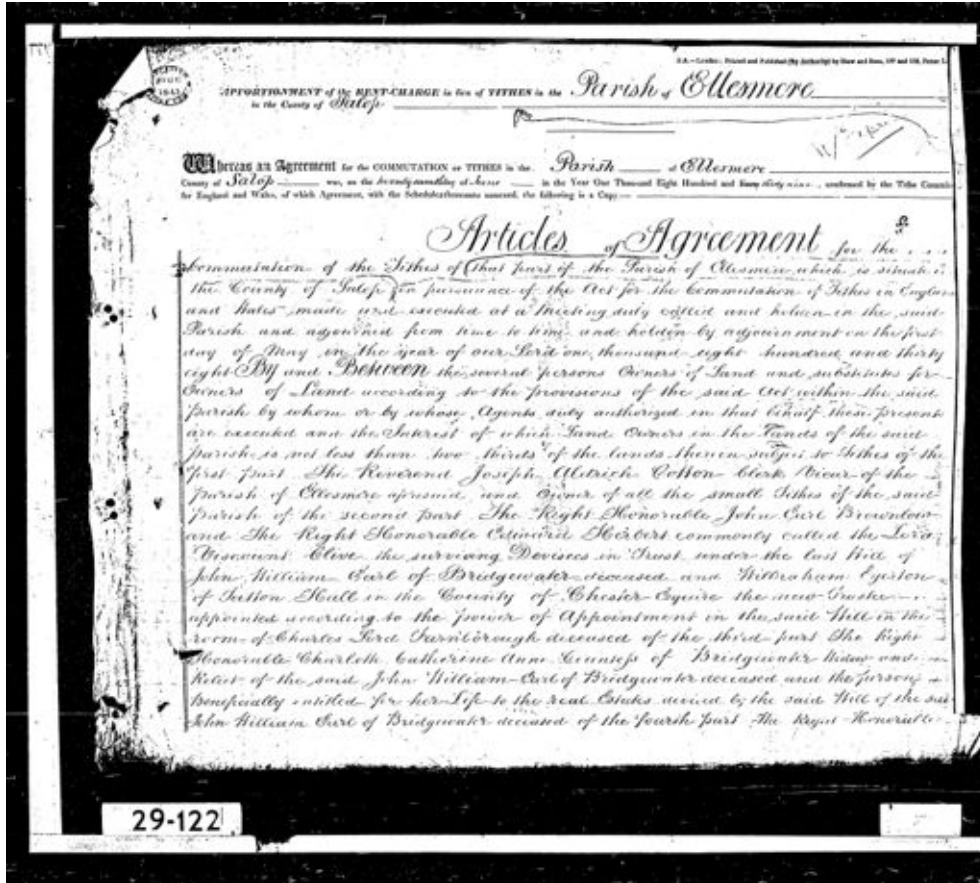 S.A.—London: Printed and Published (by Authority) by Shaw and Sons,
APPORTIONMENT of the RENT-CHARGE in lieu of TITHES in the Parish of Ellesmere
in the County of Salop
Whereas an Agreement for the COMMUTATION OF TITHES in the Parish of Ellesmere
County of Salop was, on the day of June in the Year One Thousand Eight Hundred and thirty nine, confirmed by the Tithe
for England and Wales, of which Agreement, with the Schedule thereunto annexed, the following is a Copy
Articles of Agreement for the
Commutation of the Tithes of that part of the Parish of Ellesmere which is situate in
the County of Salop in pursuance of the Act for the Commutation of Tithes in England
and Wales made and executed at a Meeting duly called and holden in the said
Parish and adjourned from time to time and holden by adjournment on the first
day of May in the year of our Lord one thousand eight hundred and thirty
eight By and Between the several persons Owners of Land and substitutes for
Owners of Land according to the provisions of the said Act within the said
parish by whom or by whose Agents duly authorized in that behalf these present
are executed and the Interest of which Land Owners in the Lands of the said
parish is not less than two thirds of the lands therein subject to Tithes of the
first part The Reverend Joseph Aldrich Cotton Clerk Vicar of the
parish of Ellesmere aforesaid and Owner of all the small Tithes of the said
parish of the second part The Right Honorable John Earl Brownlow
and The Right Honorable Edward Herbert commonly called the Lord
Viscount Clive the surviving Devisees in Trust under the last Will of
John William Earl of Bridgewater deceased and Wilbraham Egerton
of Tatton Hall in the County of Chester Esquire the new Trustee
appointed according to the power of Appointment in the said Will in the
room of Charles Lord Farnborough deceased of the third part The Right
Honorable Charlotte Catherine Anne Countess of Bridgewater Widow and
Relict of the said John William Earl of Bridgewater deceased and the person
beneficially entitled for her Life to the real Estates devised by the said Will of the said
John William Earl of Bridgewater deceased of the fourth part The Right Honorable
29-122